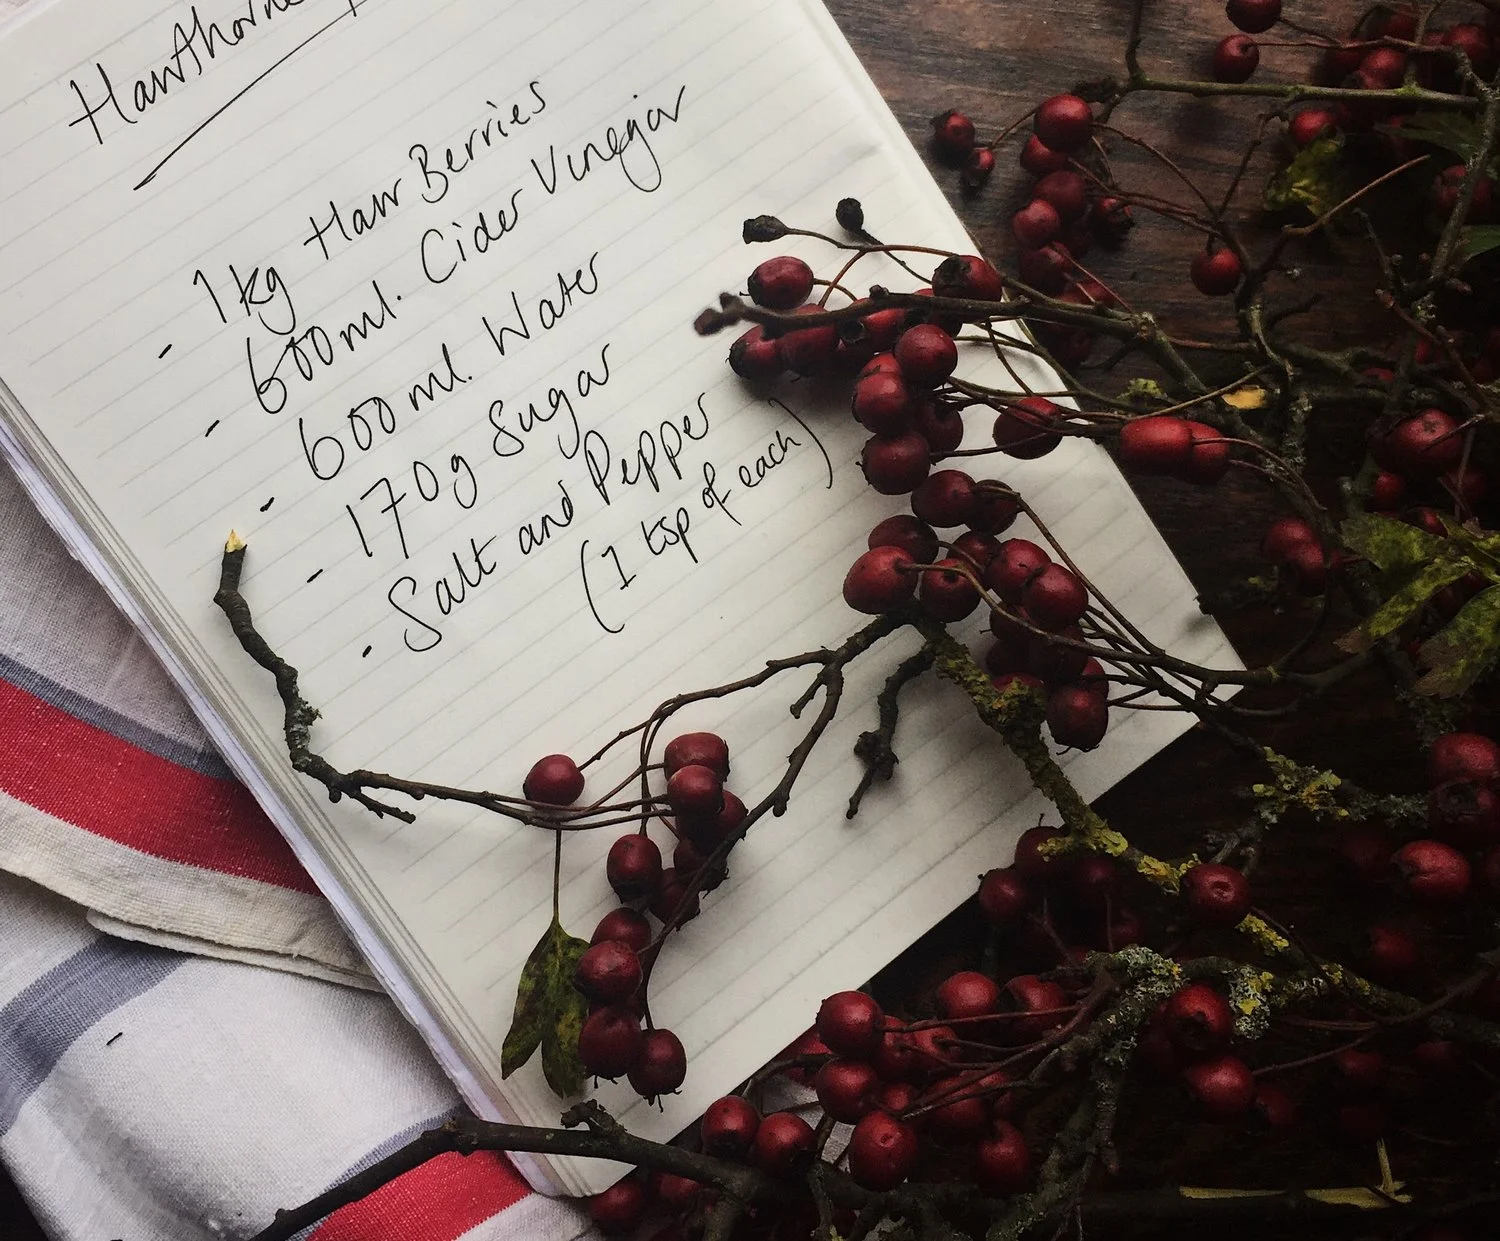 Hawthorne
- 1kg Haw Berries
- 600ml. Cider Vinegar
- 600ml. Water
- 170g Sugar
- Salt and Pepper
(1 tsp of each)